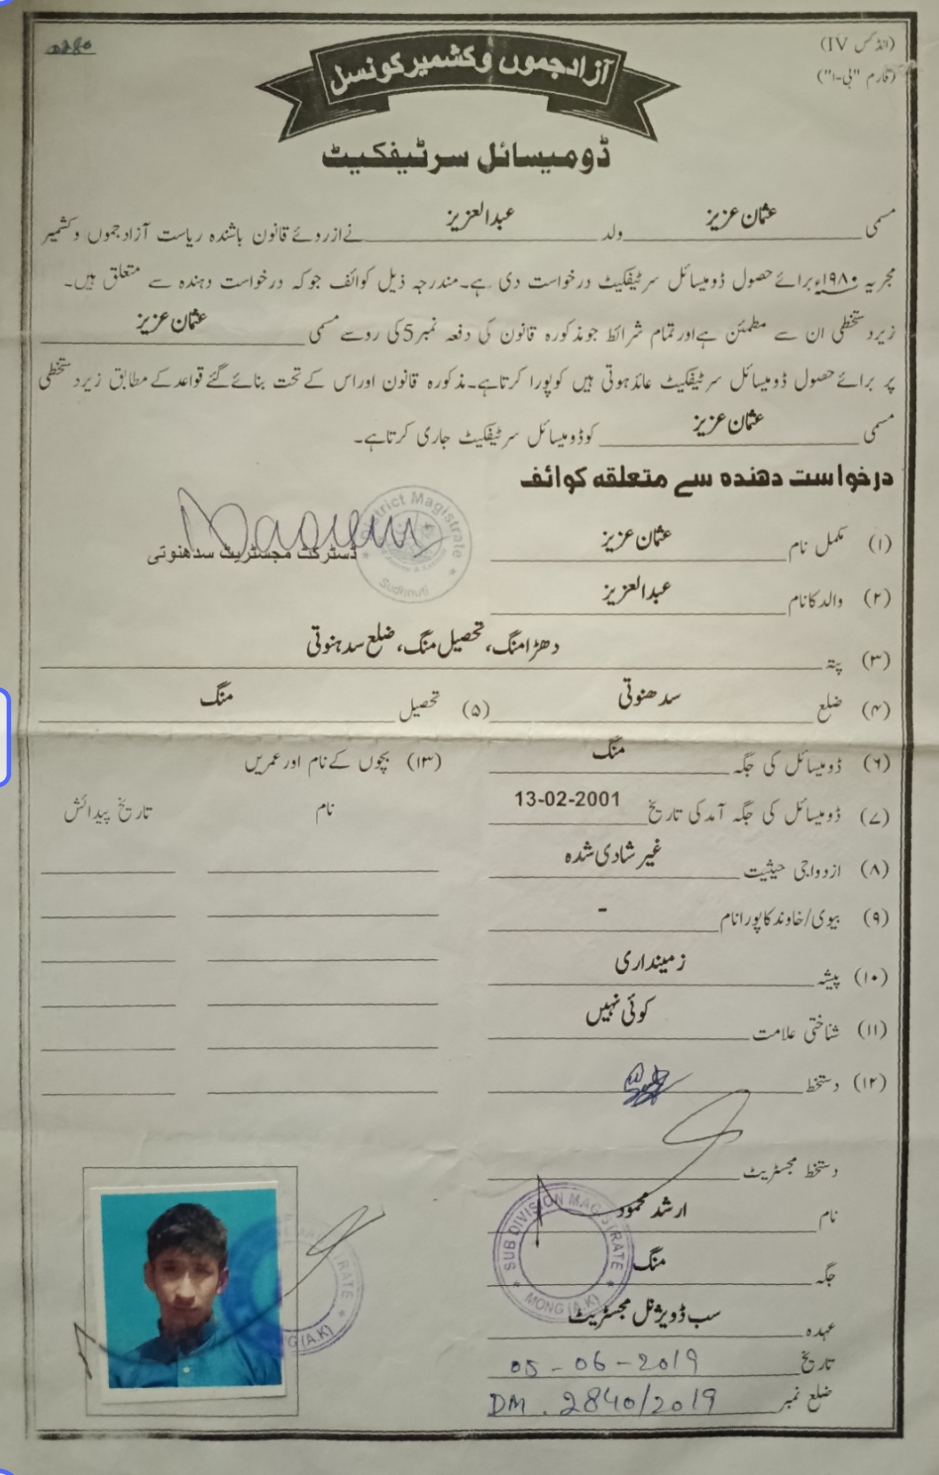 (انڈکس IV)
(فارم "پی-۱")
آزادجموں وکشمیرکونسل
ڈومیسائل سرٹیفکیٹ
مسمی عثمان عزیز ولد عبدالعزیز نےازروئے قانون باشندہ ریاست آزادجموں وکشمیر
مجریہ ۱۹۸۰ءبرائے حصول ڈومیسائل سرٹیفکیٹ درخواست دی ہے۔مندرجہ ذیل کوائف جوکہ درخواست دہندہ سے متعلق ہیں۔
زیردستخطی ان سے مطمئن ہےاورتمام شرائط جومذکورہ قانون کی دفعہ نمبر5کی روسے مسمی عثمان عزیز
پر برائے حصول ڈومیسائل سرٹیفکیٹ عائدہوتی ہیں کوپورا کرتاہے۔مذکورہ قانون اوراس کے تحت بنائے گئے قواعدکے مطابق زیردستخطی
مسمی عثمان عزیز کوڈومیسائل سرٹیفکیٹ جاری کرتاہے۔
درخواست دھندہ سے متعلقہ کوائف
(۱) مکمل نام عثمان عزیز
District Magistrate
Sudhnuti
ڈسٹرکٹ مجسٹریٹ سدھنوتی
(۲) والدکانام عبدالعزیز
(۳) پتہ دھڑامنگ، تحصیل منگ، ضلع سدہنوتی
(۴) ضلع سدھنوتی (۵) تحصیل منگ
(۶) ڈومیسائل کی جگہ منگ
(۱۳) بچوں کے نام اورعمریں
(۷) ڈومیسائل کی جگہ آمدکی تاریخ 13-02-2001
نام تاریخ پیدائش
(۸) ازدواجی حیثیت غیرشادی شدہ
(۹) بیوی/خاوندکاپورانام -
(۱۰) پیشہ زمینداری
(۱۱) شناختی علامت کوئی نہیں
(۱۲) دستخط
دستخط مجسٹریٹ
نام ارشد محمود
SUB DIVISION MAGISTRATE
MONG (A.K)
جگہ منگ
عہدہ سب ڈویژنل مجسٹریٹ
تاریخ 05-06-2019
ضلع نمبر DM. 2840/2019
G(A.K)